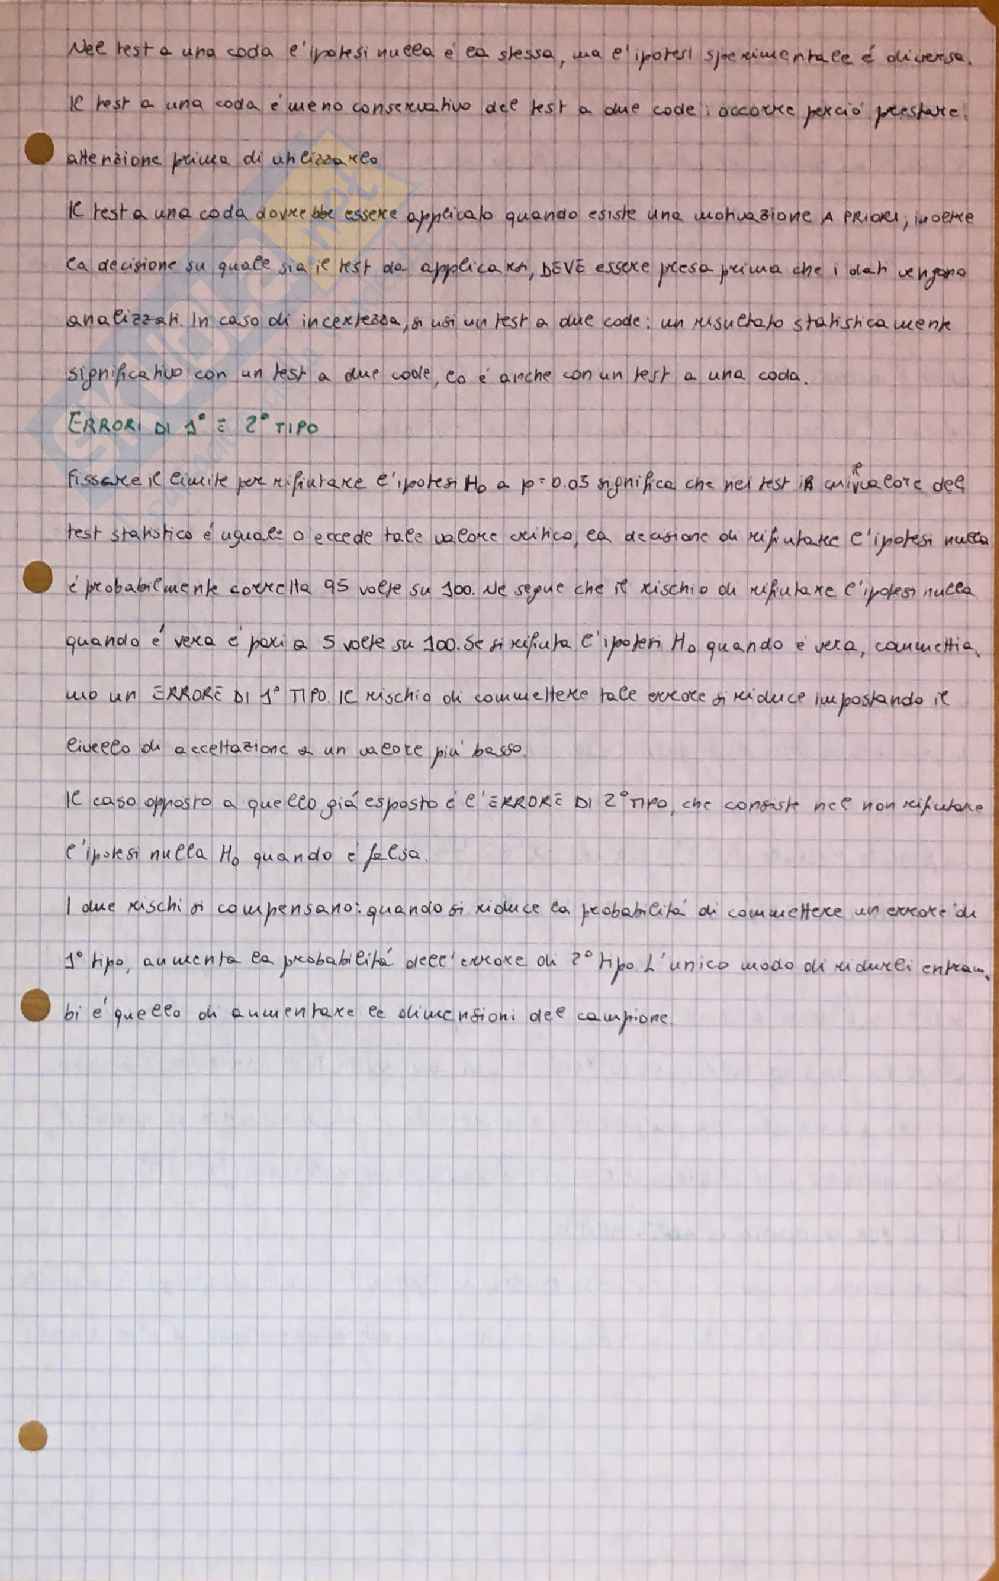 Nel test a una coda l'ipotesi nulla è la stessa, ma l'ipotesi sperimentale è diversa.
Il test a una coda è meno conservativo del test a due code: occorre perciò prestare
attenzione prima di utilizzarlo
Il test a una coda dovrebbe essere applicato quando esiste una motivazione A PRIORI, inoltre
la decisione su quale sia il test da applicarsi, DEVE essere presa prima che i dati vengano
analizzati. In caso di incertezza, si usi un test a due code: un risultato statisticamente
significativo con un test a due code, lo è anche con un test a una coda.
ERRORI DI 1° E 2° TIPO
Fissare il limite per rifiutare l'ipotesi H0 a p=0.05 significa che nel test in cui il valore del
test statistico è uguale o eccede tale valore critico, la decisione di rifiutare l'ipotesi nulla
è probabilmente corretta 95 volte su 100. Ne segue che il rischio di rifiutare l'ipotesi nulla
quando è vera è pari a 5 volte su 100. Se si rifiuta l'ipotesi H0 quando è vera, commettia-
mo un ERRORE DI 1° TIPO. Il rischio di commettere tale errore si riduce impostando il
livello di accettazione a un valore più basso.
Il caso opposto a quello già esposto è l'ERRORE DI 2° TIPO, che consiste nel non rifiutare
l'ipotesi nulla H0 quando è falsa.
I due rischi si compensano: quando si riduce la probabilità di commettere un errore di
1° tipo, aumenta la probabilità dell'errore di 2° tipo. L'unico modo di ridurli entram-
bi è quello di aumentare le dimensioni del campione.